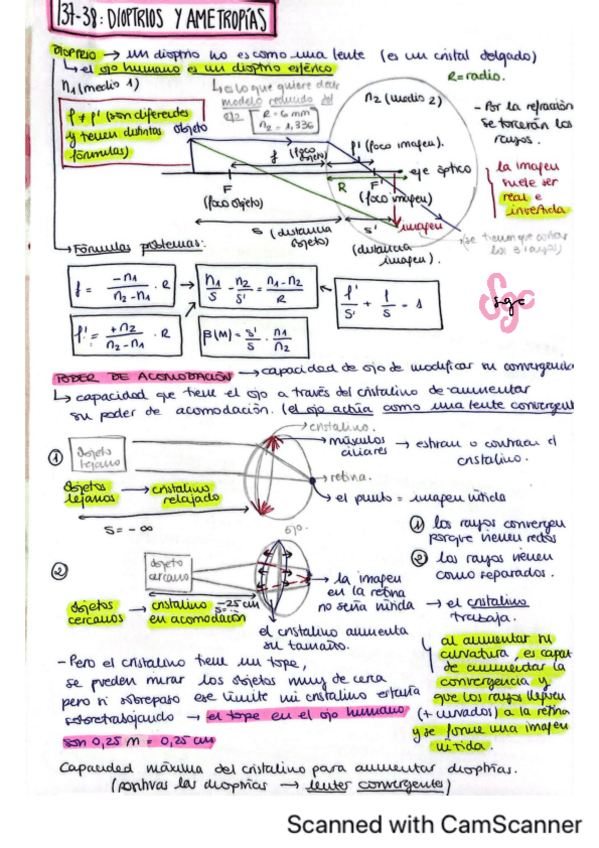 137-38: DIOPTRIOS Y AMETROPÍAS
DIOPTRIO → un dioptrio no es como una lente (es un cristal delgado)
↳ el ojo humano es un dioptrio esférico
R = radio.
n1 (medio 1)
↳ a lo que quiere decir
modelo reducido del
R = 6 mm
n2 = 1,336
n2 (medio 2)
- Por la refracción
se torcerán los
rayos.
f ≠ f' (son diferentes
y tienen distintas
fórmulas)
objeto
f (foco objeto)
f' (foco imagen).
eje óptico
R
F
(foco objeto)
F'
(foco imagen)
la imagen
suele ser
real e
invertida
imagen
s (distancia
objeto)
s'
(distancia
imagen).
los 3 rayos)
↳ Fórmulas problemas:
f = -n1 / n2-n1 · R → n1/s - n2/s' = n1-n2 / R
f'/s' + f/s = 1
sgc
f' = +n2 / n2-n1 · R
β(M) = s'/s · n1/n2
PODER DE ACOMODACIÓN → capacidad de ojo de modificar su convergencia
↳ capacidad que tiene el ojo a través del cristalino de aumentar
su poder de acomodación. (el ojo actúa como una lente convergent
① objeto
lejano
→ cristalino.
→ músculos
ciliares → estiran o contraen el
cristalino.
→ retina.
→ el punto = imagen nítida
objetos
lejanos → cristalino
relajado
s = -∞
ojo.
① los rayos convergen
porque vienen rectos
② los rayos vienen
como separados.
② objeto
cercano
→ la imagen
en la retina
no sería nítida → el cristalino
trabaja.
objetos
cercanos → cristalino
en acomodación
s=-25 cm
el cristalino aumenta
su tamaño.
al aumentar su
curvatura, es capaz
de aumentar la
convergencia y
que los rayos lleguen
(+ curvados) a la retina
y se forme una imagen
nítida.
- Pero el cristalino tiene un tope,
se pueden mirar los objetos muy de cerca
pero si sobrepaso ese límite mi cristalino estaría
sobretrabajando → el tope en el ojo humano
son 0,25 m = 0,25 cm
Capacidad máxima del cristalino para aumentar dioptrías.
(positivas las dioptrías → lentes convergentes)
Scanned with CamScanner